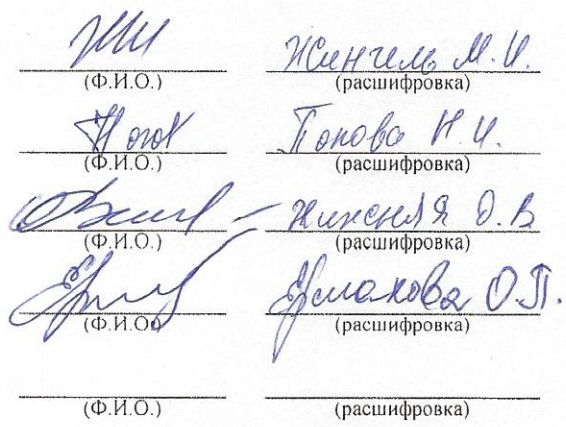 Жингель М.И.
(Ф.И.О.) (расшифровка)
Попова Н.И.
(Ф.И.О.) (расшифровка)
Нижняя О.В
(Ф.И.О.) (расшифровка)
Ермакова О.П.
(Ф.И.О.) (расшифровка)
(Ф.И.О.) (расшифровка)